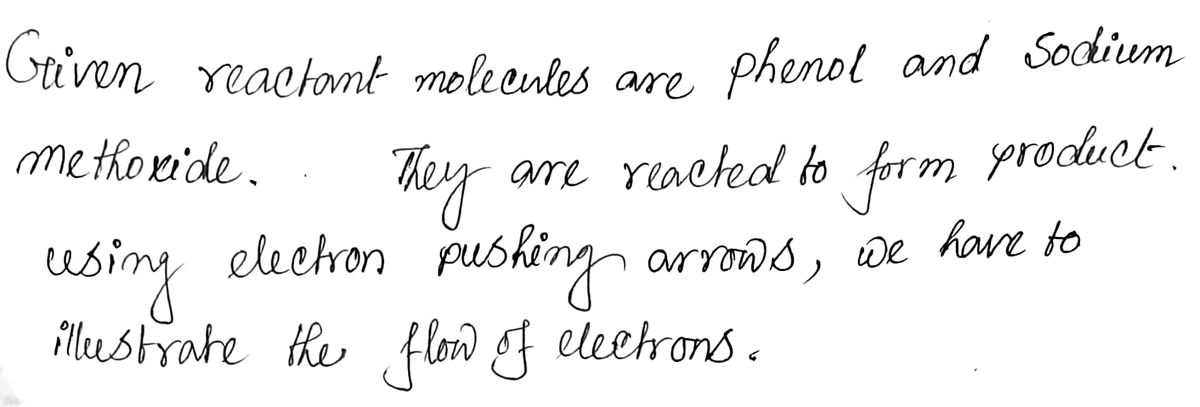 Given reactant molecules are phenol and Sodium
methoxide. They are reacted to form product.
using electron pushing arrows, we have to
illustrate the flow of electrons.